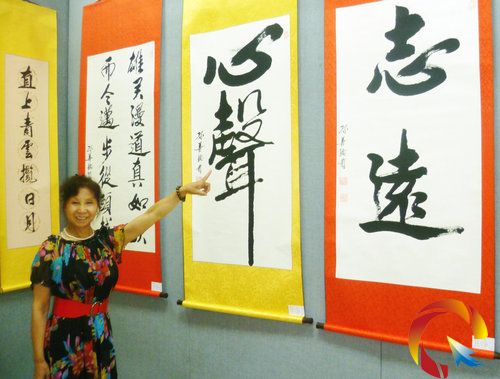 直上青雲攬日月
雄关漫道真如铁
而今迈步从头越
心聲
志遠